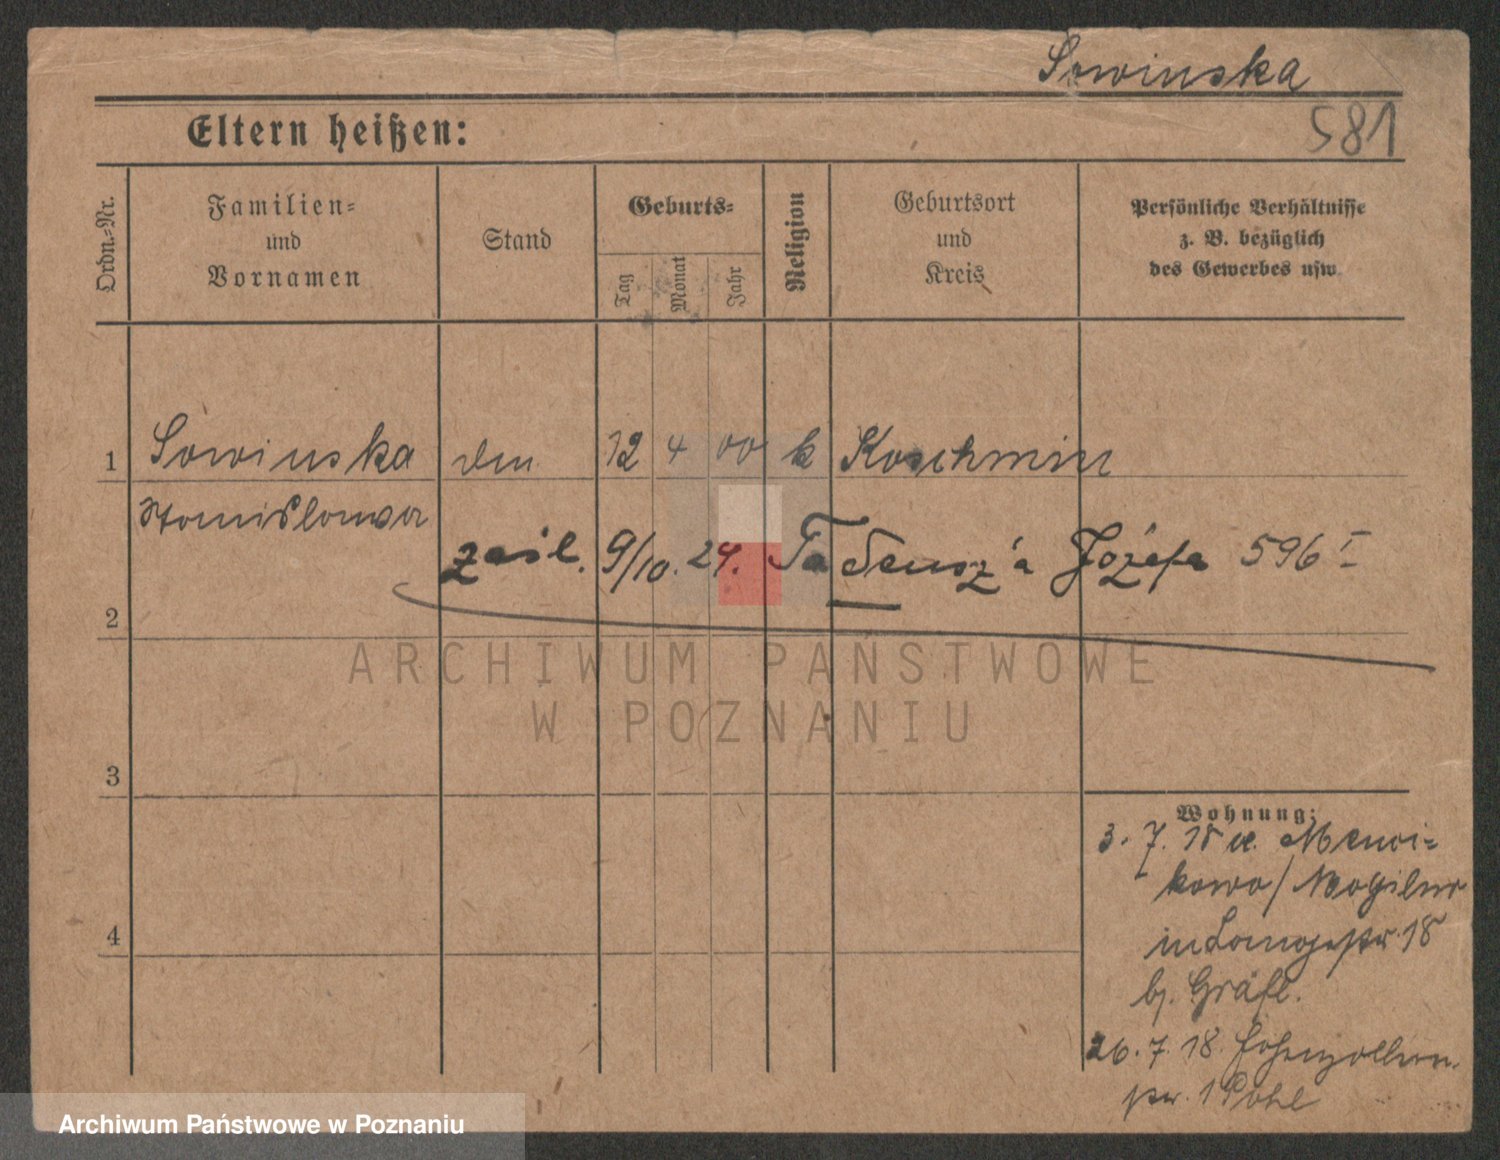 Sowinska
581
Eltern heißen:
Ordn.-Nr.
Familien-
und
Vornamen
Stand
Geburts-
Tag
Monat
Jahr
Religion
Geburtsort
und
Kreis
Persönliche Verhältnisse
z. B. bezüglich
des Gewerbes usw.
1 Sowinska 12 4 00 k Koschmin
Stanislawa
zaśl. 9/10. 24. Tadeusz'a Józefa 596 I
2
ARCHIWUM PAŃSTWOWE
W POZNANIU
3
Wohnung:
3. 7. 18
kowo/Mogilno
in Langestr. 18
b/. Gräfl.
4
26. 7. 18. Hohenzollern
str. 1 Pohl
Archiwum Państwowe w Poznaniu